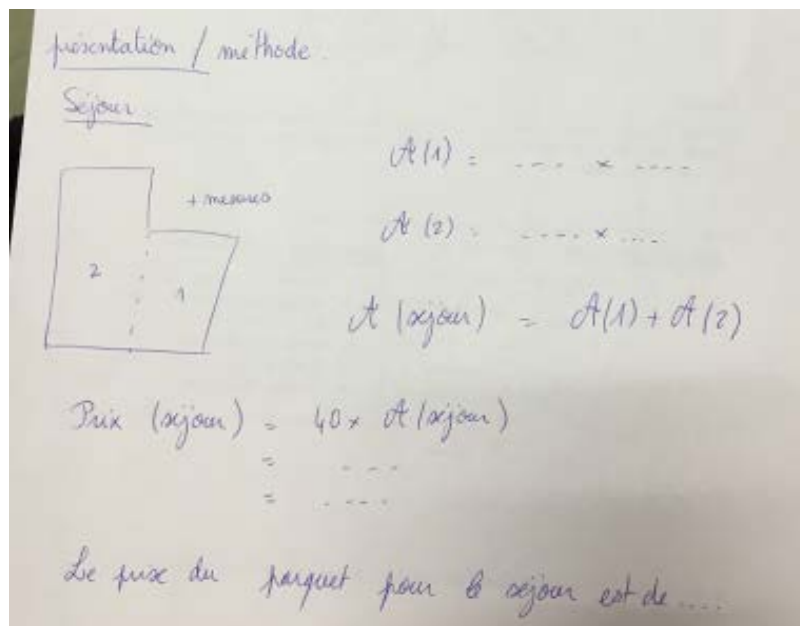 présentation / méthode.
Séjour
+ mesures
2
1
A(1) = .... × ....
A(2) = .... × ....
A(séjour) = A(1) + A(2)
Prix (séjour) = 40 × A(séjour)
= ....
= ....
Le prix du parquet pour le séjour est de ....